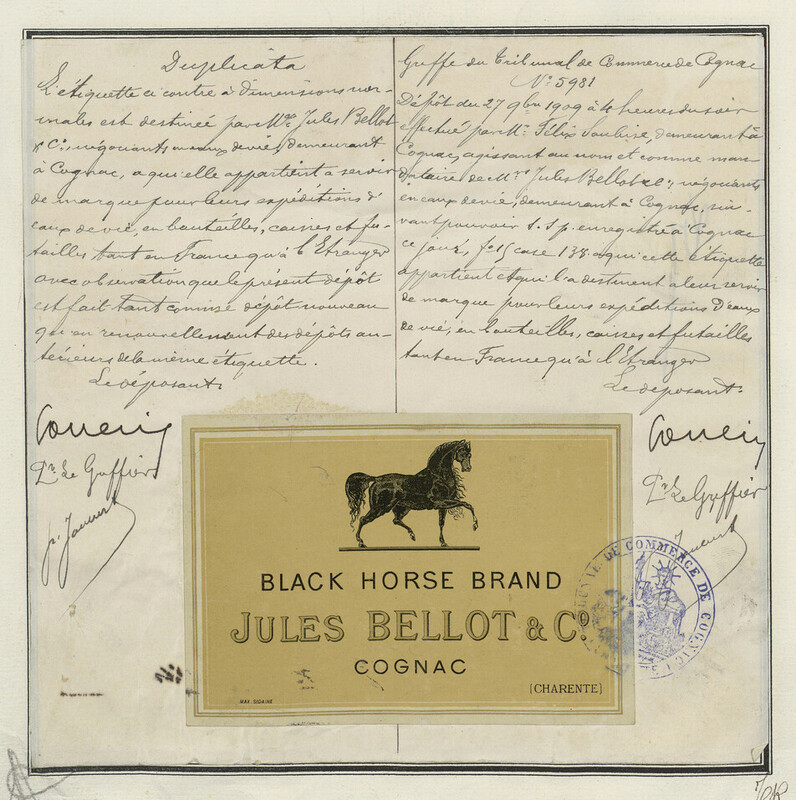 Duplicata
L'étiquette ci contre à dimensions nor-
males est destinée par Mrs Jules Bellot
& Cie, négociants en eaux de vie, demeurant
à Cognac, a qui elle appartient a servir
de marque pour leurs expéditions d'
eaux de vie, en bouteilles, caisses et fu-
tailles tant en France qu'à l'Etranger
avec observation que le présent dépôt
est fait tant comme dépôt nouveau
qu'en renouvellement des dépôts an-
térieurs de la même étiquette.
Le déposant:
Pr. Le Greffier
Greffe du Tribunal de Commerce de Cognac
No 5981
Dépôt du 27 9bre 1909 à 4 heures du soir
effectué par Mr. Félix, demeurant à
Cognac, agissant au nom et comme man-
dataire de Mrs Jules Bellot & Cie, négociants
en eaux de vie, demeurant à Cognac, sui-
vant pouvoir s.s.p. enregistré à Cognac
ce jour, fo 15 case 138 a qui cette étiquette
appartient et qui l'a destinent a leur servir
de marque pour leurs expéditions d'eaux
de vie, en bouteilles, caisses et futailles
tant en France qu'à l'Etranger
Le déposant:
Pr. Le Greffier
BLACK HORSE BRAND
JULES BELLOT & Co.
COGNAC
(CHARENTE)
TRIBUNAL DE COMMERCE DE COGNAC